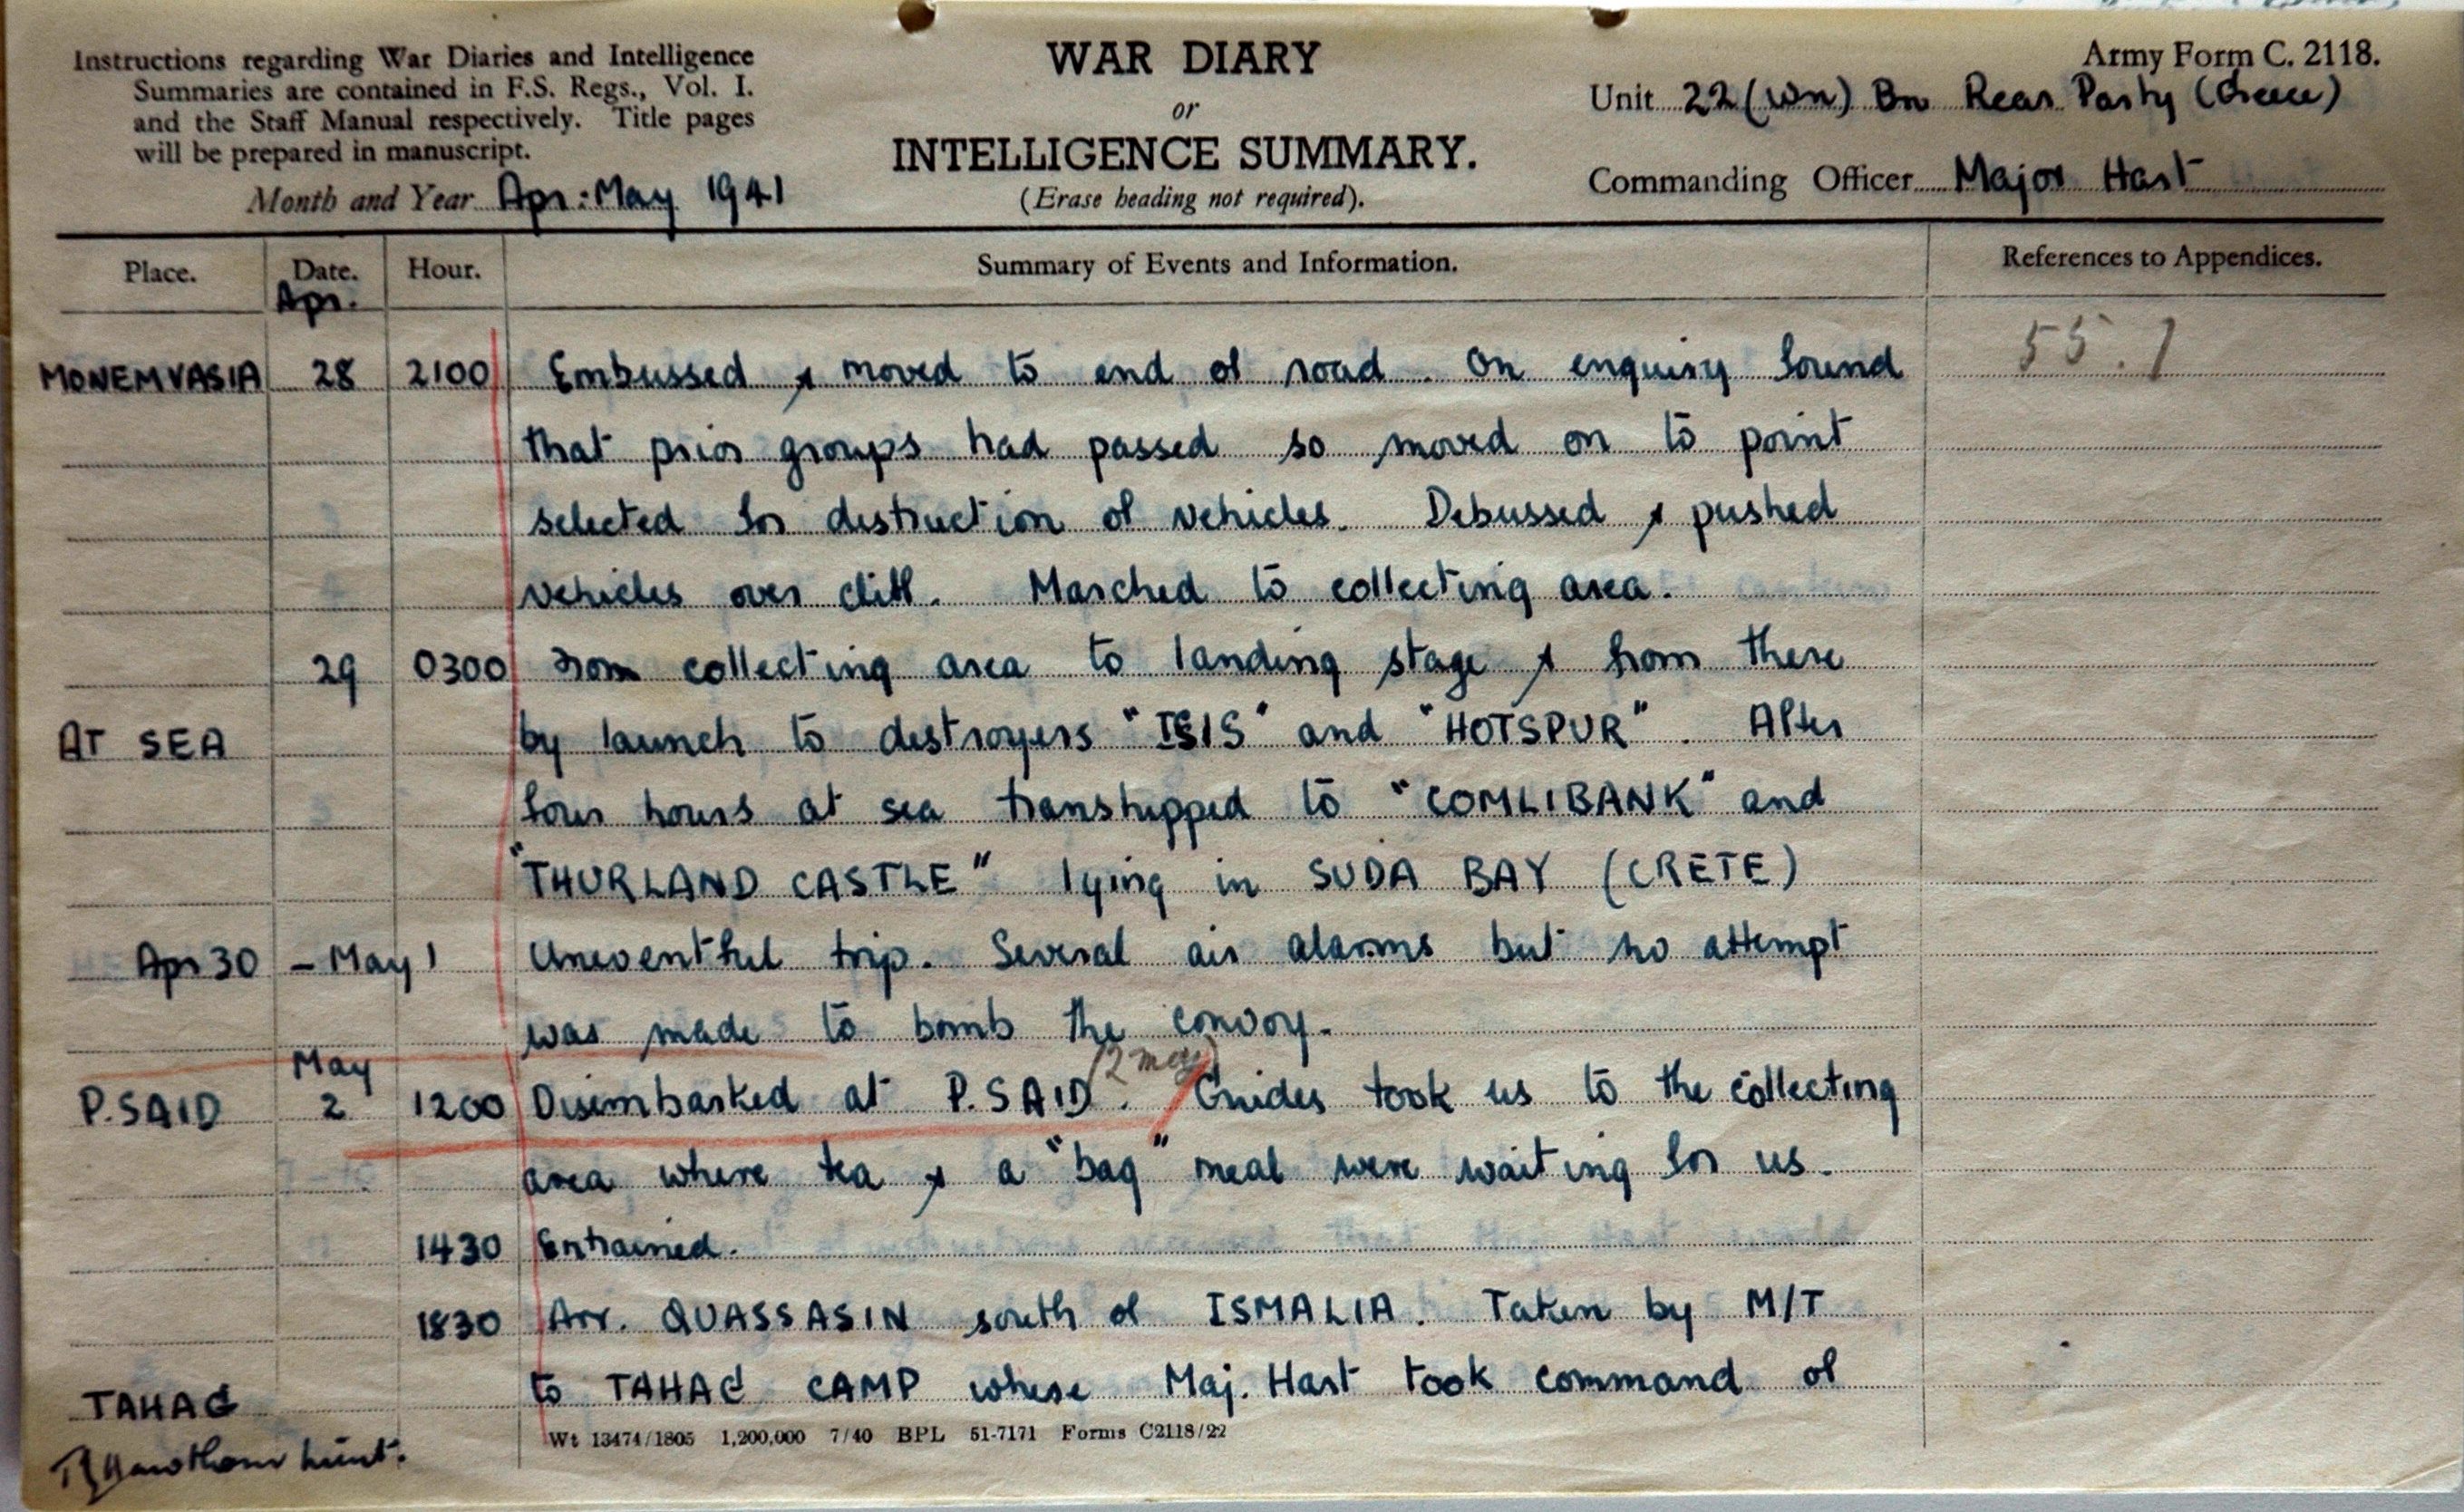 Instructions regarding War Diaries and Intelligence
Summaries are contained in F.S. Regs., Vol. I.
and the Staff Manual respectively. Title pages
will be prepared in manuscript.
Month and Year Apr: May 1941
WAR DIARY
or
INTELLIGENCE SUMMARY.
(Erase heading not required).
Army Form C. 2118.
Unit 22 (Wn) Bn Rear Party (Greece)
Commanding Officer Major Hart
Place. Date. Hour. Summary of Events and Information. References to Appendices.
Apr.
MONEMVASIA 28 2100 Embussed & moved to end of road. On enquiry found 55.1
that prior groups had passed so moved on to point
selected for destruction of vehicles. Debussed & pushed
vehicles over cliff. Marched to collecting area.
29 0300 From collecting area to landing stage & from there
AT SEA by launch to destroyers "ISIS" and "HOTSPUR". After
four hours at sea transhipped to "COMLIBANK" and
"THURLAND CASTLE" lying in SUDA BAY (CRETE)
Apr 30 - May 1 Uneventful trip. Several air alarms but no attempt
was made to bomb the convoy.
May (2 may)
P.SAID 2 1200 Disembarked at P.SAID. Guides took us to the collecting
area where tea & a "bag" meal were waiting for us.
1430 Entrained.
1830 Arr. QUASSASIN south of ISMALIA. Taken by M/T
TAHAG to TAHAG CAMP where Maj. Hart took command of
Wt 13474/1805 1,200,000 7/40 BPL 51-7171 Forms C2118/22